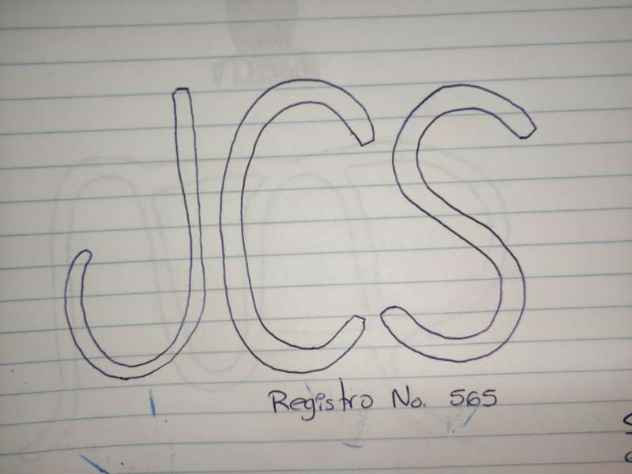 JCS
Registro No. 565